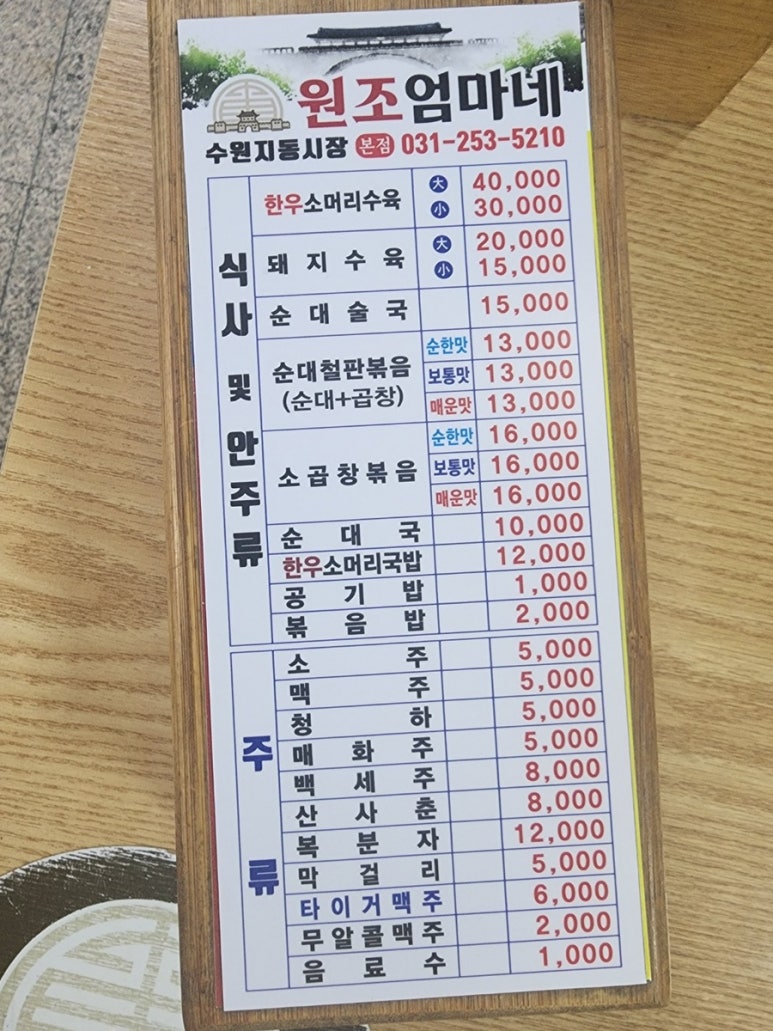 원조엄마네
수원지동시장 본점 031-253-5210
식사 및 안주류
한우소머리수육 大 40,000
小 30,000
돼지수육 大 20,000
小 15,000
순대술국 15,000
순대철판볶음 (순대+곱창) 순한맛 13,000
보통맛 13,000
매운맛 13,000
소곱창볶음 순한맛 16,000
보통맛 16,000
매운맛 16,000
순대국 10,000
한우소머리국밥 12,000
공기밥 1,000
볶음밥 2,000
주류
소주 5,000
맥주 5,000
청하 5,000
매화주 5,000
백세주 8,000
산사춘 8,000
복분자 12,000
막걸리 5,000
타이거맥주 6,000
무알콜맥주 2,000
음료수 1,000